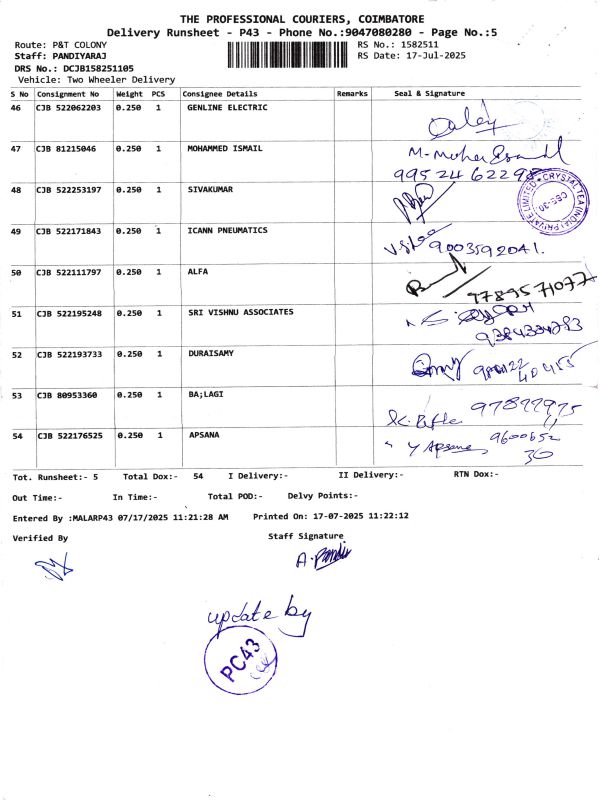 THE PROFESSIONAL COURIERS, COIMBATORE
Delivery Runsheet - P43 - Phone No.:9047080280 - Page No.:5
Route: P&T COLONY
RS No.: 1582511
Staff: PANDIYARAJ
RS Date: 17-Jul-2025
DRS No.: DCJB158251105
Vehicle: Two Wheeler Delivery
S No Consignment No Weight PCS Consignee Details Remarks Seal & Signature
46 CJB 522062203 0.250 1 GENLINE ELECTRIC
47 CJB 81215046 0.250 1 MOHAMMED ISMAIL
48 CJB 522253197 0.250 1 SIVAKUMAR
CRYSTAL TEA (INDIA) PRIVATE LIMITED
49 CJB 522171843 0.250 1 ICANN PNEUMATICS 9003592041.
50 CJB 522111797 0.250 1 ALFA 9789571077
51 CJB 522195248 0.250 1 SRI VISHNU ASSOCIATES
52 CJB 522193733 0.250 1 DURAISAMY
53 CJB 80953360 0.250 1 BA;LAGI
54 CJB 522176525 0.250 1 APSANA Y Apsana 9600652
30
Tot. Runsheet:- 5 Total Dox:- 54 I Delivery:- II Delivery:- RTN Dox:-
Out Time:- In Time:- Total POD:- Delvy Points:-
Entered By :MALARP43 07/17/2025 11:21:28 AM Printed On: 17-07-2025 11:22:12
Verified By
Staff Signature
A. Pandi
update by
PC43